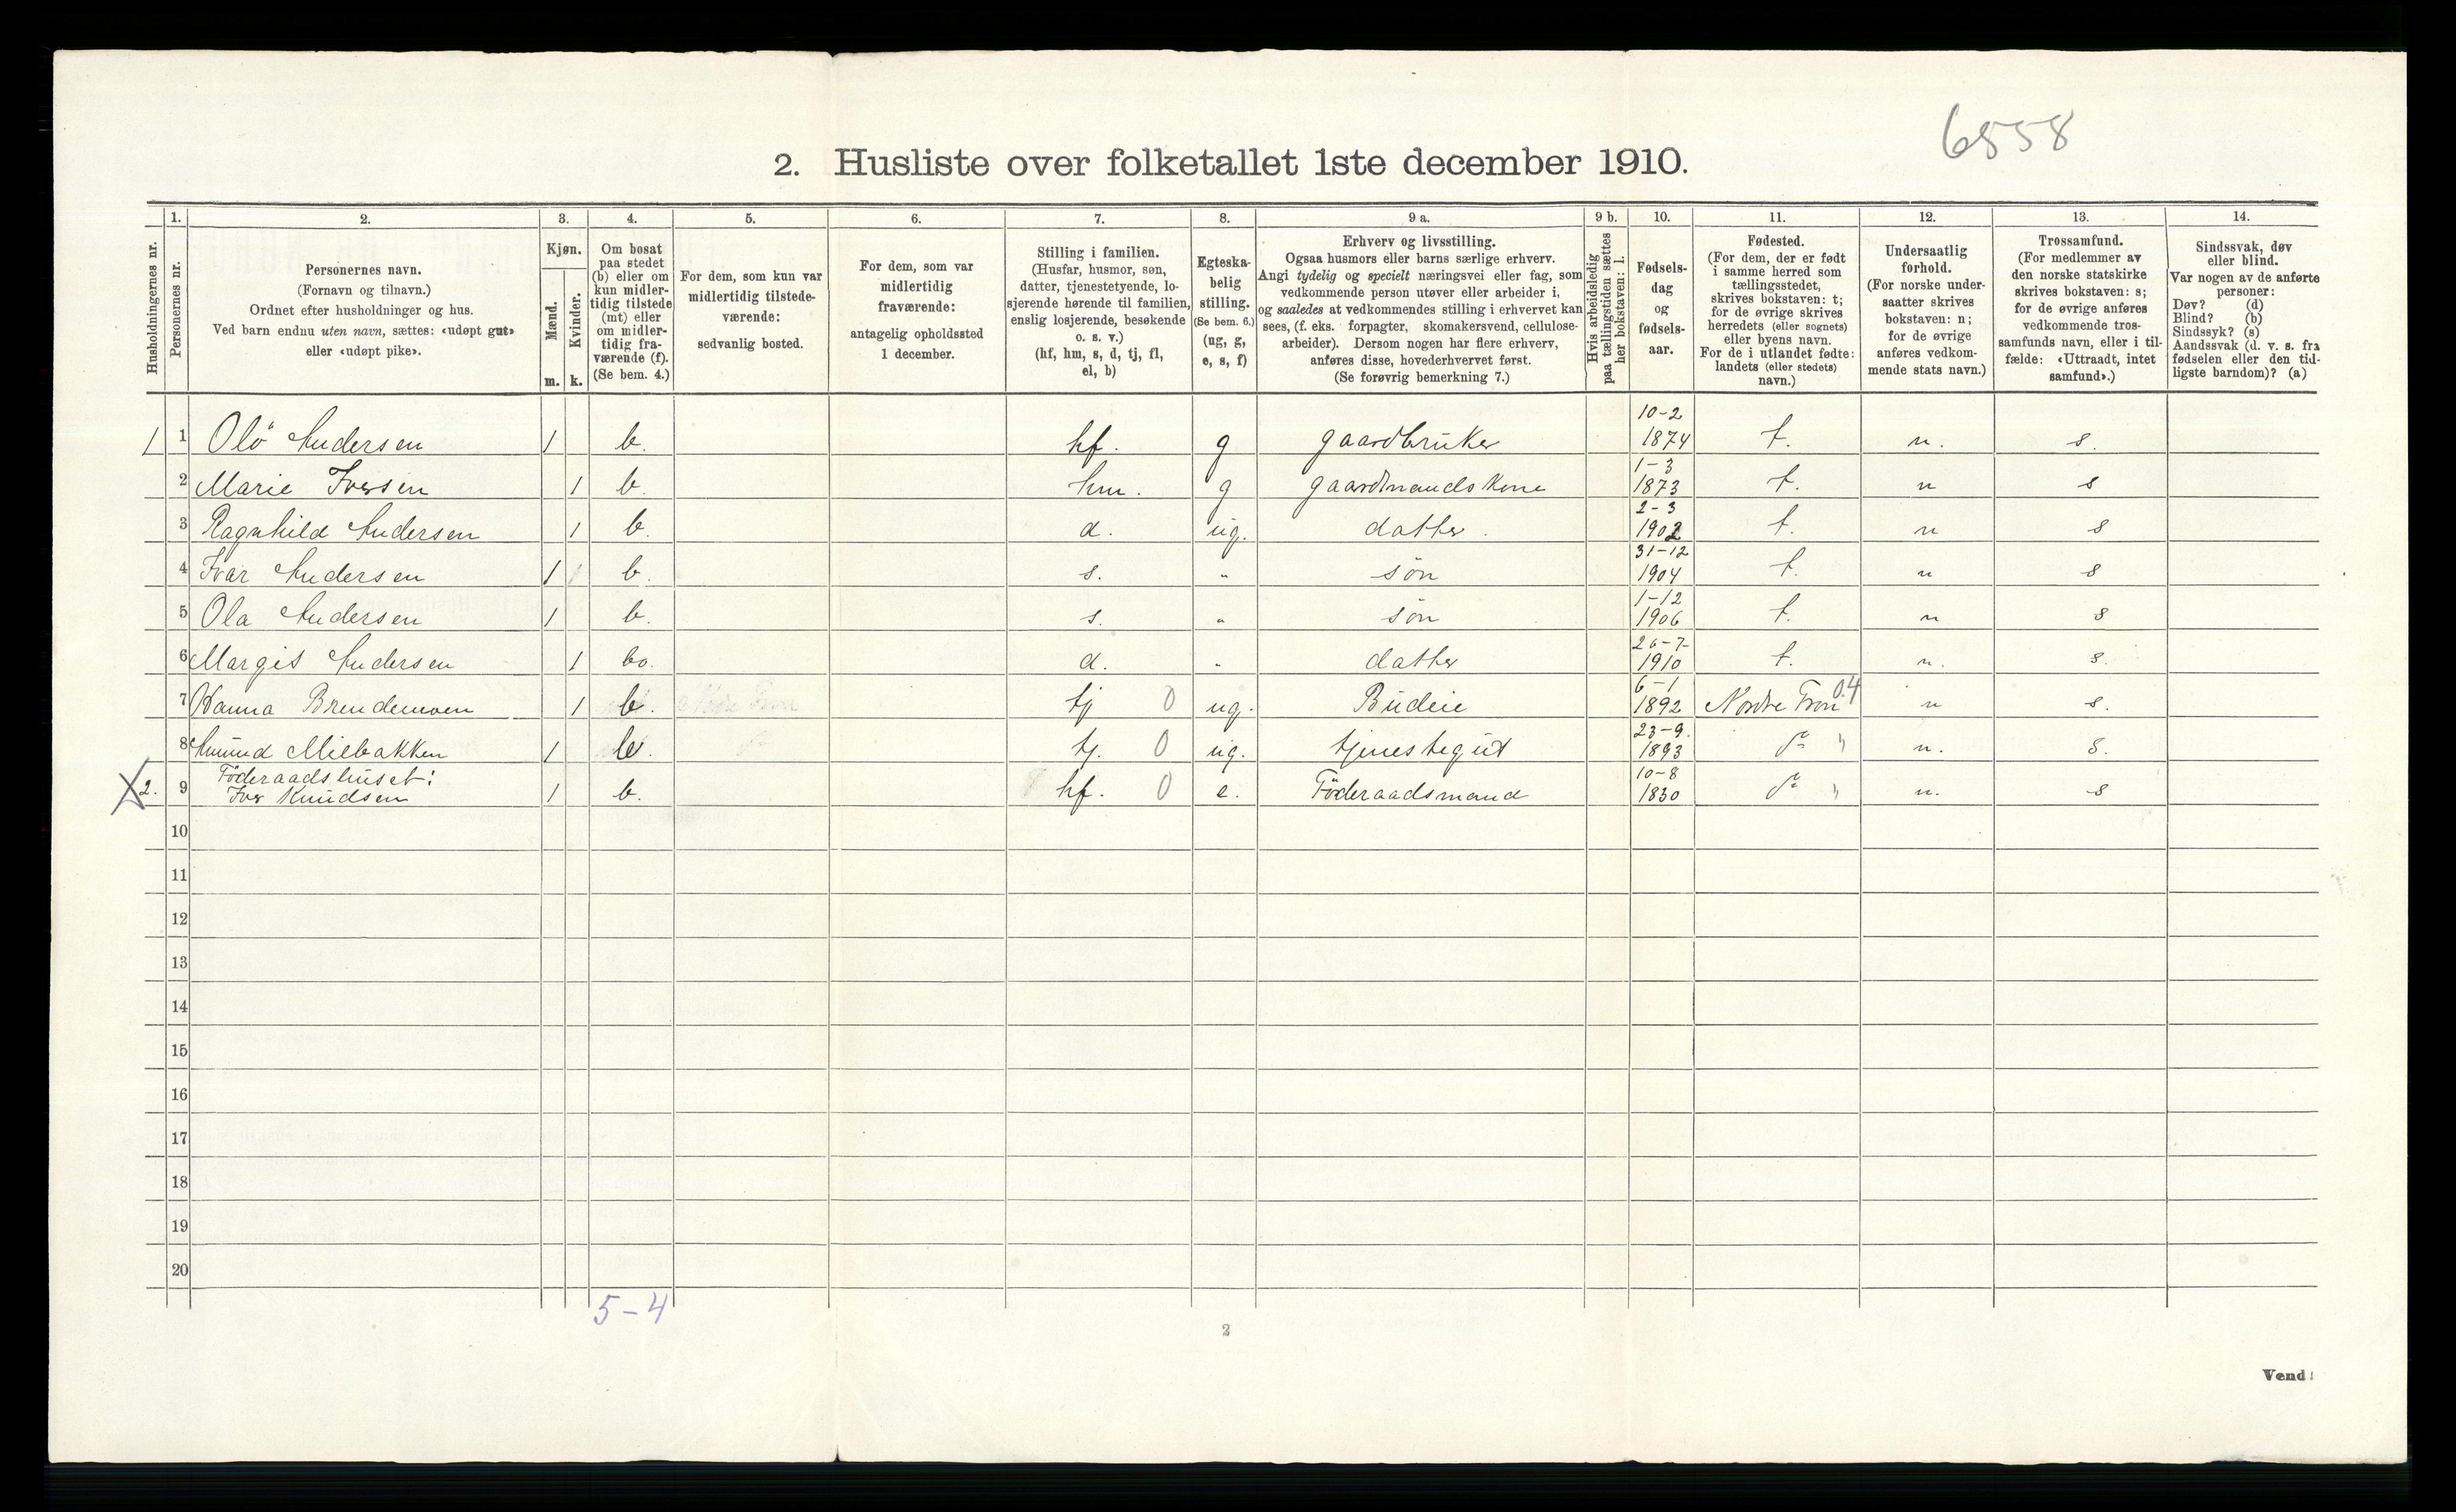 6558
2. Husliste over folketallet 1ste december 1910.
Husholdningernes nr.
1.
Personernes nr.
2.
Personernes navn.
(Fornavn og tilnavn.)
Ordnet efter husholdninger og hus.
Ved barn endnu uten navn, sættes: «udøpt gut»
eller «udøpt pike».
3.
Kjøn.
Mænd.
m.
Kvinder.
k.
4.
Om bosat
paa stedet
(b) eller om
kun midler-
tidig tilstede
(mt) eller
om midler-
tidig fra-
værende (f).
(Se bem. 4.)
5.
For dem, som kun var
midlertidig tilstede-
værende:
sedvanlig bosted.
6.
For dem, som var
midlertidig
fraværende:
antagelig opholdssted
1 december.
7.
Stilling i familien.
(Husfar, husmor, søn,
datter, tjenestetyende, lo-
sjerende hørende til familien,
enslig losjerende, besøkende
o. s. v.)
(hf, hm, s, d, tj, fl,
el, b)
8.
Egteska-
belig
stilling.
(Se bem. 6.)
(ug, g,
e, s, f)
9 a.
Erhverv og livsstilling.
Ogsaa husmors eller barns særlige erhverv.
Angi tydelig og specielt næringsvei eller fag, som
vedkommende person utøver eller arbeider i,
og saaledes at vedkommendes stilling i erhvervet kan
sees, (f. eks. forpagter, skomakersvend, cellulose-
arbeider). Dersom nogen har flere erhverv,
anføres disse, hovederhvervet først.
(Se forøvrig bemerkning 7.)
9 b.
Hvis arbeidsledig
paa tællingstiden sættes
her bokstaven: l.
10.
Fødsels-
dag
og
fødsels-
aar.
11.
Fødested.
(For dem, der er født
i samme herred som
tællingsstedet,
skrives bokstaven: t;
for de øvrige skrives
herredets (eller sognets)
eller byens navn.
For de i utlandet fødte:
landets (eller stedets)
navn.)
12.
Undersaatlig
forhold.
(For norske under-
saatter skrives
bokstaven: n;
for de øvrige
anføres vedkom-
mende stats navn.)
13.
Trossamfund.
(For medlemmer av
den norske statskirke
skrives bokstaven: s;
for de øvrige anføres
vedkommende tros-
samfunds navn, eller i til-
fælde: «Uttraadt, intet
samfund».)
14.
Sindssvak, døv
eller blind.
Var nogen av de anførte
personer:
Døv? (d)
Blind? (b)
Sindssyk? (s)
Aandssvak (d. v. s. fra
fødselen eller den tid-
ligste barndom)? (a)
1 1 Andersen 1 b. hf. g gaardbruker 10-2 1874 t. n. s.
2 Marie Iversen 1 b. hm. g gaardmandskone 1-3 1873 t. n s
3 Ragnhild Andersen 1 b. d. ug. datter. 2-3 1902 t. n s
4 Ivar Andersen 1 b. s. " søn 31-12 1904 t. n s
5 Ola Andersen 1 b. s. " søn 1-12 1906 t. n s
6 Margit Andersen 1 bo. d. " datter 26-7- 1910 t. n. s.
7 Hanna Brendemoen 1 b. tj 0 ug. Budeie 6-1 1892 Nordre Fron 04 n s.
8 Amund Mielbakken 1 b. tj. 0 ug. tjenestegut 23-9. 1893 do " n. s.
2. 9 Föderaadshuset:
Iver Knudsen 1 b. hf. 0 e. Föderaadsmand 10-8 1830 do " n. s
10
11
12
13
14
15
16
17
18
19
20
5-4
2
Vend!